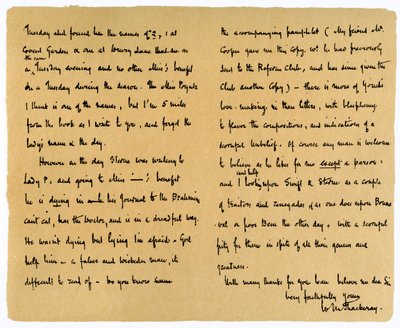 Tuesday and found her the names of 2, 1 at
Covent Garden or one at Drury Lane that on a
the same
Tuesday evening and no other Miss's benefit
on a Tuesday during the season. The Miss Poyntz
I think is one of the names, but I'm 5 miles
from the book as I write to you, and forget the
lady's name at the day.
However on the day Sterne was writing to
Lady P, and going to Miss ———'s benefit
he is dying in his Journal to the Brahmine
can't eat, has the Doctor, and is in a dreadful way.
He wasn't dying but lying I'm afraid - God
help him - a falser and wickeder man, it
difficult to read of - Do you know some
the accompanying pamphlet (My friend Mr.
Cooper gave me this Copy wh he had previously
sent to the Reform Club, and has since given the
Club another Copy) - there is more of Yorick's
love-making in these letters, with blasphemy
to flavor the compositions, and indications of a
scornful unbelief. Of course any man is welcome
to believe as he likes for me except a parson:
and I can't help
look upon Swift & Sterne as a couple
of traitors and renegades (as one does upon
or poor Bem the other day, with a scornful
pity for them in spite of all their genius and
greatness.
With many thanks for your loan believe me Dr Sir
Very faithfully Yours
W M Thackeray.